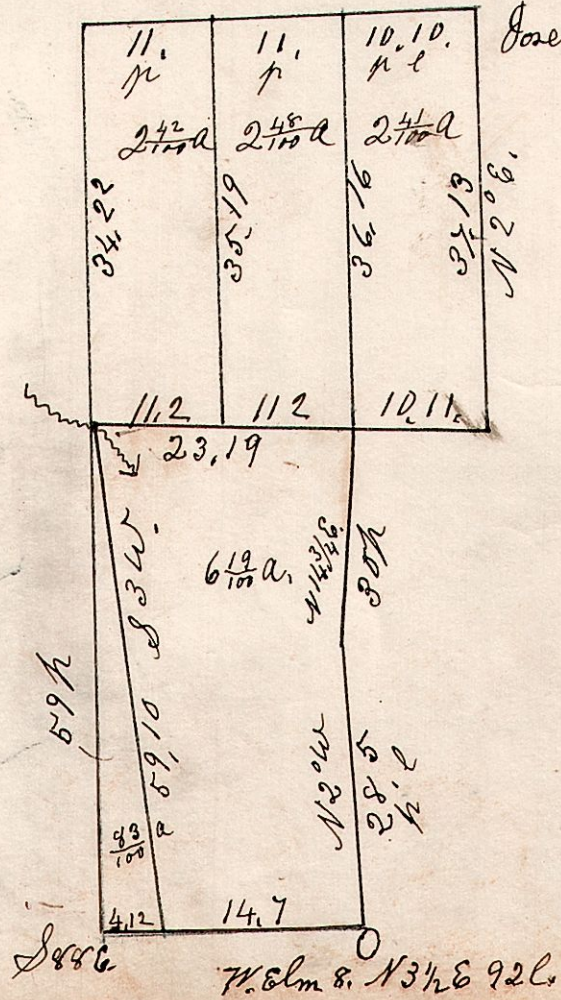 11. 11. 10.10.
p p p l
2 42/100 a 2 48/100 a 2 41/100 a
34.22
35.19
36.16
37.13
N 2° E.
11.2 11 2 10.11.
23.19
6 19/100 a.
30 p
59 p
59,10 S 3 W.
N 2° W
28 5
p. l
83/100 a
4.12 14.7
S 88 E.
W. Elm 8. N 3 1/2 E 92 l.